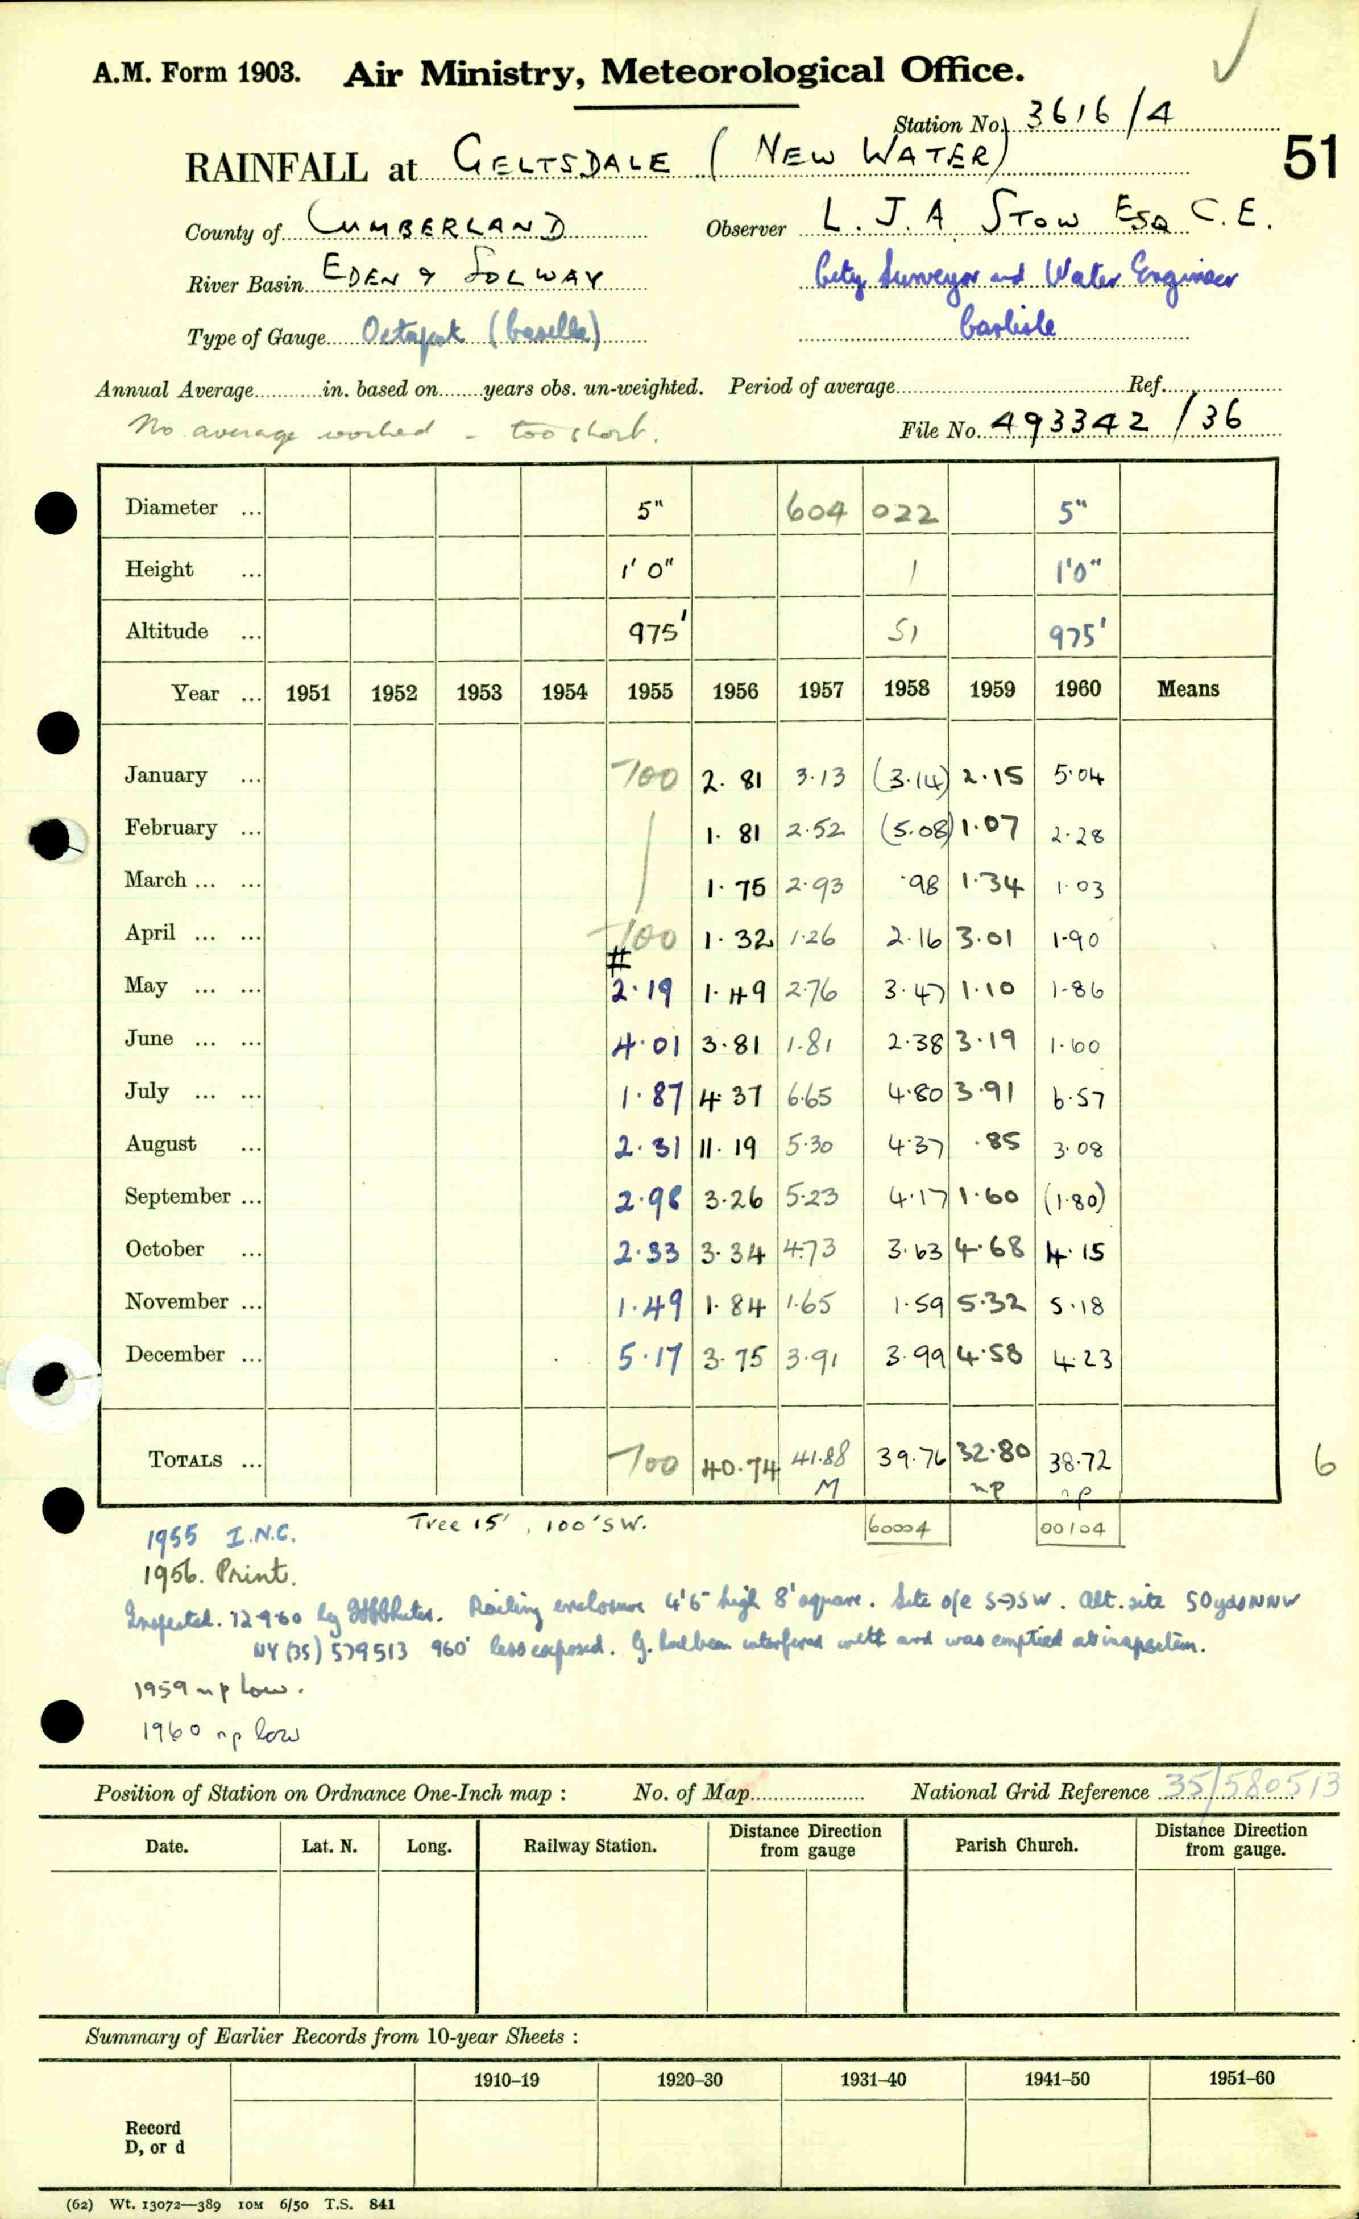 A.M. Form 1903. Air Ministry, Meteorological Office.
Station No. 3616/4
RAINFALL at GELTSDALE (NEW WATER) 51
County of CUMBERLAND Observer L. J. A. STOW ESQ C.E.
River Basin EDEN & SOLWAY City Surveyor and Water Engineer
Type of Gauge Octapent (Casella) Carlisle
Annual Average in. based on years obs. un-weighted. Period of average Ref.
No average worked - too short. File No. 493342/36
Diameter ... 5" 604 022 5"
Height ... 1' 0" 1 1'0"
Altitude ... 975' 51 975'
Year ... 1951 1952 1953 1954 1955 1956 1957 1958 1959 1960 Means
January ... -100 2.81 3.13 (3.14) 2.15 5.04
February ... 1.81 2.52 (5.08) 1.07 2.28
March ... ... 1.75 2.93 .98 1.34 1.03
April ... ... -100 1.32 1.26 2.16 3.01 1.90
#
May ... ... 2.19 1.49 2.76 3.47 1.10 1.86
June ... ... 4.01 3.81 1.81 2.38 3.19 1.60
July ... ... 1.87 4.37 6.65 4.80 3.91 6.57
August ... 2.31 11.19 5.30 4.37 .85 3.08
September ... 2.98 3.26 5.23 4.17 1.60 (1.80)
October ... 2.33 3.34 4.73 3.63 4.68 4.15
November ... 1.49 1.84 1.65 1.59 5.32 5.18
December ... 5.17 3.75 3.91 3.99 4.58 4.23
TOTALS ... -100 40.74 41.88 39.76 32.80 38.72 6
M np np
1955 I.N.C. Tree 15', 100' SW. 60004 00104
1956. Print.
Inspected. 12.9.60 by Railing enclosure 4'6" high 8' square. Site o/e S→SW. Alt. site 50yds NNW
NY (35) 579513 960' less exposed. G. had been interfered with and was emptied at inspection.
1959 np low.
1960 np low
Position of Station on Ordnance One-Inch map : No. of Map National Grid Reference 35/580513
Date. Lat. N. Long. Railway Station. Distance from Direction gauge Parish Church. Distance from Direction gauge.
Summary of Earlier Records from 10-year Sheets :
1910–19 1920–30 1931–40 1941–50 1951–60
Record
D, or d
(62) Wt. 13072—389 10M 6/50 T.S. 841